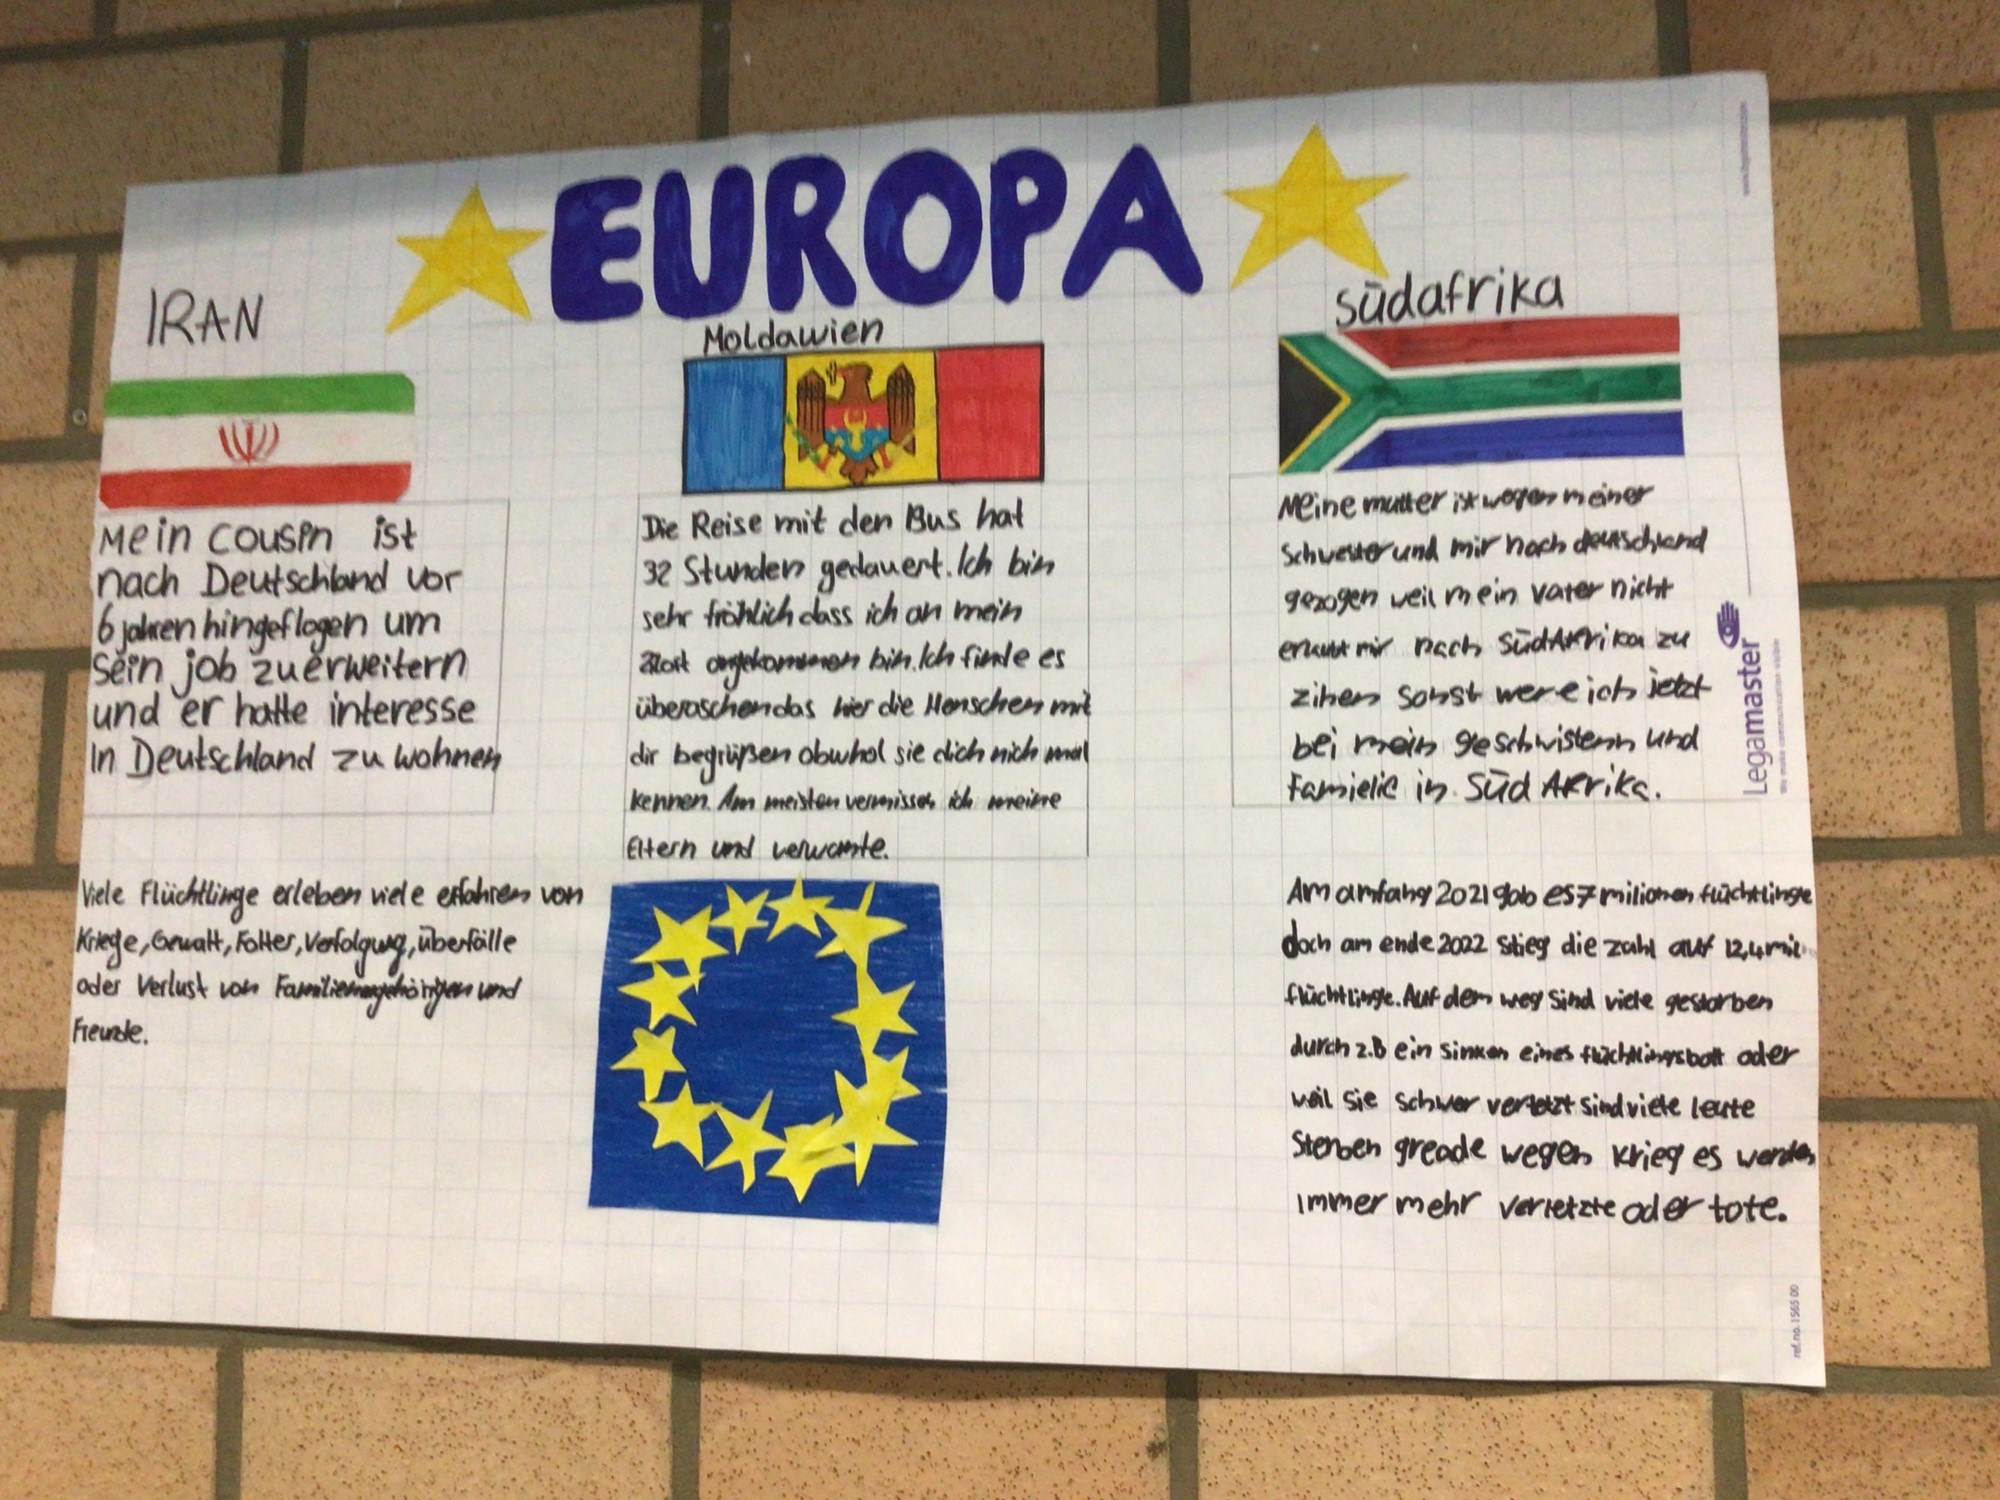 EUROPA
IRAN
Mein Cousin ist
nach Deutschland vor
6 jahren hingeflogen um
sein job zu erweitern
und er hatte interesse
In Deutschland zu wohnen
Viele Flüchtlinge erleben viele erfahren von
Kriege, Gewalt, Folter, Verfolgung, überfälle
oder Verlust von Familienangehörigen und
Freunde.
Moldawien
Die Reise mit den Bus hat
32 Stunden gedauert. Ich bin
sehr fröhlich dass ich an mein
angekommen bin. Ich finde es
überaschen das hier die Menschen mit
dir begrüßen obwhol sie dich nich mal
kennen. Am meisten vermissen ich meine
Eltern und verwante.
Südafrika
Meine mutter ist wegen meiner
schwester und mir nach deutschland
gezogen weil mein vater nicht
erlaubt mir nach SüdAfrika zu
zihen sonst were ich jetzt
bei mein geschwistern und
Familie in Süd Afrika.
Am amfang 2021 gab es 7 milionen flüchtlinge
doch am ende 2022 stieg die zahl auf 12,4 mil
flüchtlinge. Auf dem weg sind viele gestorben
durch z.B ein sinken eines flüchtlingsbott oder
weil sie schwer verletzt sind viele leute
Sterben greade wegen krieg es werden
immer mehr verletzte oder tote.
Legamaster
ref.no. 1565 00